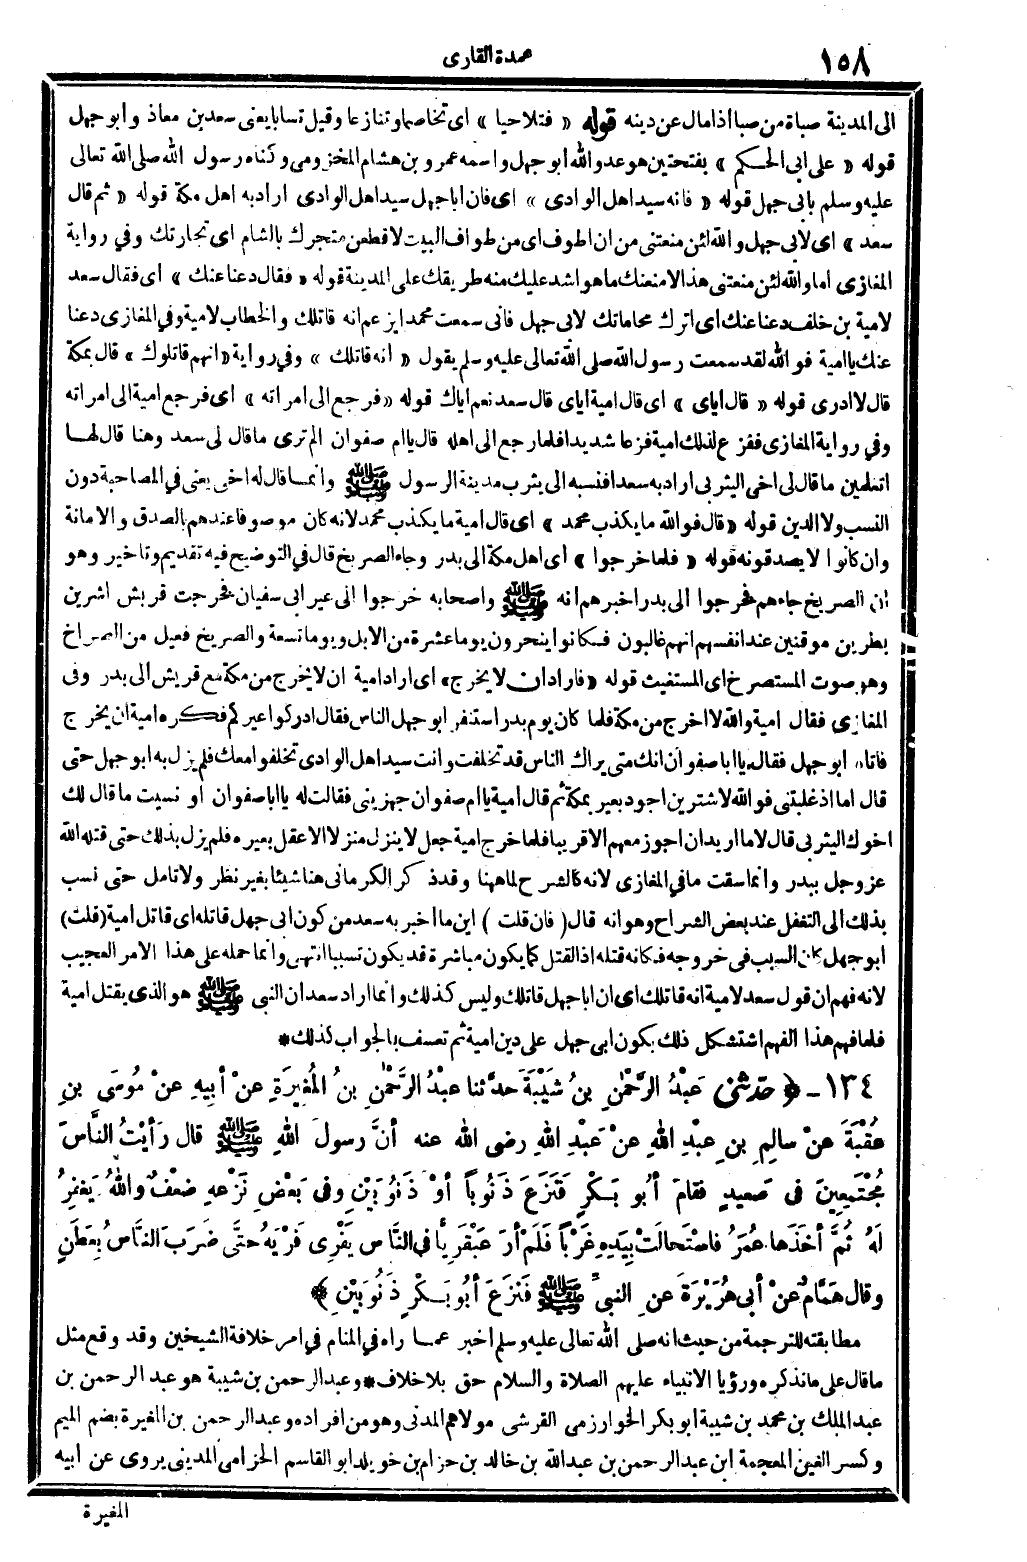 ١٥٨
عمدة القارى
الى المدينة صباة من صبا اذا مال عن دينه قوله « فتلاحيا » اى تخاصما وتنازعا وقيل تسابا يعنى سعد بن معاذ وابو جهل
قوله « على ابى الحكم » بفتحتين هو عدو الله أبو جهل واسمه عمرو بن هشام المخزومى وكناه رسول الله صلى الله تعالى
عليه وسلم بابى جهل قوله « فانه سيد اهل الوادى » اى فان أبا جهل سيد اهل الوادى اراد به اهل مكة قوله « ثم قال
سعد » اى لابى جهل والله لئن منعتنى من ان اطوف اى من طواف البيت لاقطعن متجرك بالشام اى تجارتك وفي رواية
المغازى اما والله لئن منعتنى هذا لامنعنك ما هو اشد عليك منه طريقك على المدينة قوله « فقال دعنا عنك » اى فقال سعد
لامية بن خلف دعنا عنك اى اترك محاماتك لابى جهل فانى سمعت محمدا يزعم انه قاتلك والخطاب لامية وفي المغازى دعنا
عنك يا امية فو الله لقد سمعت رسول الله صلى الله تعالى عليه وسلم يقول « انه قاتلك » وفي رواية « انهم قاتلوك » قال بمكة
قال لا ادرى قوله « قال اياى » اى قال امية اياى قال سعد نعم اياك قوله « فرجع الى امراته » اى فرجع امية الى امراته
وفي رواية المغازى ففزع لذلك امية فزعا شديدا فلما رجع الى اهله قال يا ام صفوان الم ترى ما قال لى سعد وهنا قال لها
اتعلمين ما قال لى اخى اليثربى اراد به سعدا فنسبه الى يثرب مدينة الرسول ﷺ وانما قال له اخى يعنى في المصاحبة دون
النسب ولا الدين قوله « قال فو الله ما يكذب محمد » اى قال امية ما يكذب محمد لانه كان موصوفا عندهم بالصدق والامانة
وان كانوا لا يصدقونه قوله « فلما خرجوا » أى اهل مكة الى بدر وجاء الصريخ قال في التوضيح فيه تقديم وتاخير وهو
ان الصريخ جاءهم فخرجوا الى بدر اخبرهم انه ﷺ واصحابه خرجوا الى عير ابى سفيان فخرجت قريش اشرين
بطرين موقنين عند انفسهم انهم غالبون فكانوا ينحرون يوما عشرة من الابل ويوما تسعة والصريخ فعيل من الصراخ
وهو صوت المستصرخ اى المستغيث قوله « فاراد ان لا يخرج » اى اراد امية ان لا يخرج من مكة مع قريش الى بدر وفى
المغازى فقال امية والله لا اخرج من مكة فلما كان يوم بدر استنفر ابو جهل الناس فقال ادركوا عيركم فكره امية ان يخرج
فاتاه ابو جهل فقال يا ابا صفوان انك متى يراك الناس قد تخلفت وانت سيد اهل الوادى تخلفوا معك فلم يزل به ابو جهل حتى
قال اما اذ غلبتنى فو الله لاشترين اجود بعير بمكة ثم قال امية يا ام صفوان جهزينى فقالت له يا ابا صفوان او نسيت ما قال لك
اخوك اليثربى قال لا ما اريد ان اجوز معهم الا قريبا فلما خرج امية جعل لا ينزل منزلا الا عقل بعيره فلم يزل بذلك حتى قتله الله
عز وجل ببدر وانما سقت ما في المغازى لانه كالشرح لما ههنا وقد ذكر الكرمانى هنا شيئا بغير نظر ولا تامل حتى نسب
بذلك الى التغفل عند بعض الشراح وهو انه قال (فان قلت ) اين ما أخبر به سعد من كون ابى جهل قاتله اى قاتل امية (قلت)
ابو جهل كان السبب فى خروجه فكانه قتله اذ القتل كما يكون مباشرة قد يكون تسببا انتهى وانما حمله على هذا الامر العجيب
لانه فهم ان قول سعد لامية انه قاتلك اى ان ابا جهل قاتلك وليس كذلك وانما اراد سعد ان النبى ﷺ هو الذى يقتل امية
فلما فهم هذا الفهم استشكل ذلك بكون ابى جهل على دين امية ثم تعسف بالجواب كذلك *
١٣٤ - ﴿ حَدَّثَنِى عَبْدُ الرَّحْمٰنِ بنُ شَيْبَةَ حَدَّثَنا عبْدُ الرَّحْمٰنِ بنُ المُغِيرَةِ عنْ أبِيهِ عنْ مُوسَى بنِ
عُقْبَةَ عنْ سالِمِ بنِ عبْدِ اللهِ عنْ عَبْدِ اللهِ رضى الله عنه أنَّ رسولَ اللهِ ﷺ قال رَأيْتُ النَّاسَ
مُجْتَمِعِينَ فى صَعِيدٍ فقامَ أبُو بَكْرٍ فَنَزَعَ ذَنُوباً أوْ ذَنُوبَيْنِ وفى بَعْضِ نَزْعِهِ ضَعْفٌ واللهُ يَغْفِرُ
لَهُ ثُمَّ أخَذَها عُمَرُ فاسْتَحالَتْ بِيَدِهِ غَرْباً فَلَمْ أرَ عَبْقَرِيًّا في النَّاسِ يَفْرِى فَرْيَهُ حتَّى ضَرَبَ النَّاسُ بِعَطَنٍ
وقال هَمَّامٌ عنْ أبى هُرَيْرَةَ عنِ النبىِّ ﷺ فَنَزَعَ أبُو بَكْرٍ ذَنُوبَيْنِ ﴾
مطابقته للترجمة من حيث انه صلى الله تعالى عليه وسلم اخبر عما راه في المنام في امر خلافة الشيخين وقد وقع مثل
ما قال على ما نذكره ورؤيا الانبياء عليهم الصلاة والسلام حق بلا خلاف * وعبد الرحمن بن شيبة هو عبد الرحمن بن
عبد الملك بن محمد بن شيبة ابو بكر الخوارزمى القرشى مولاهم المدنى وهو من افراده وعبد الرحمن بن المغيرة بضم الميم
وكسر الغين المعجمة ابن عبد الرحمن بن عبد الله بن خالد بن حزام بن خويلد ابو القاسم الحزامى المدينى يروى عن أبيه
المغيرة